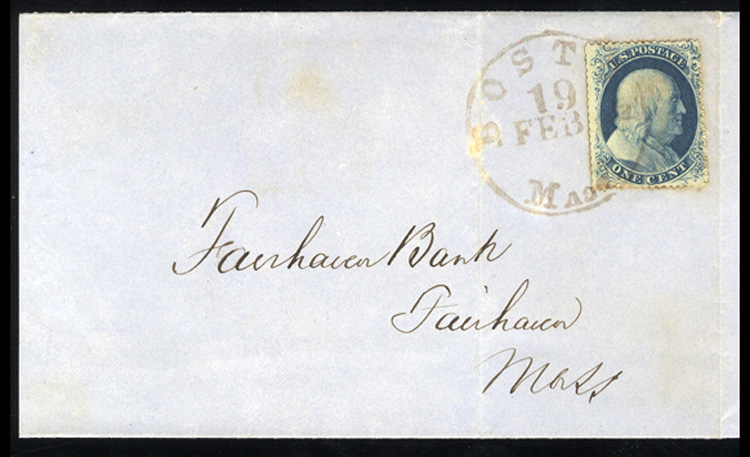 BOSTON
19
FEB
Mass
U.S. POSTAGE
ONE CENT
Fairhaven Bank
Fairhaven
Mass